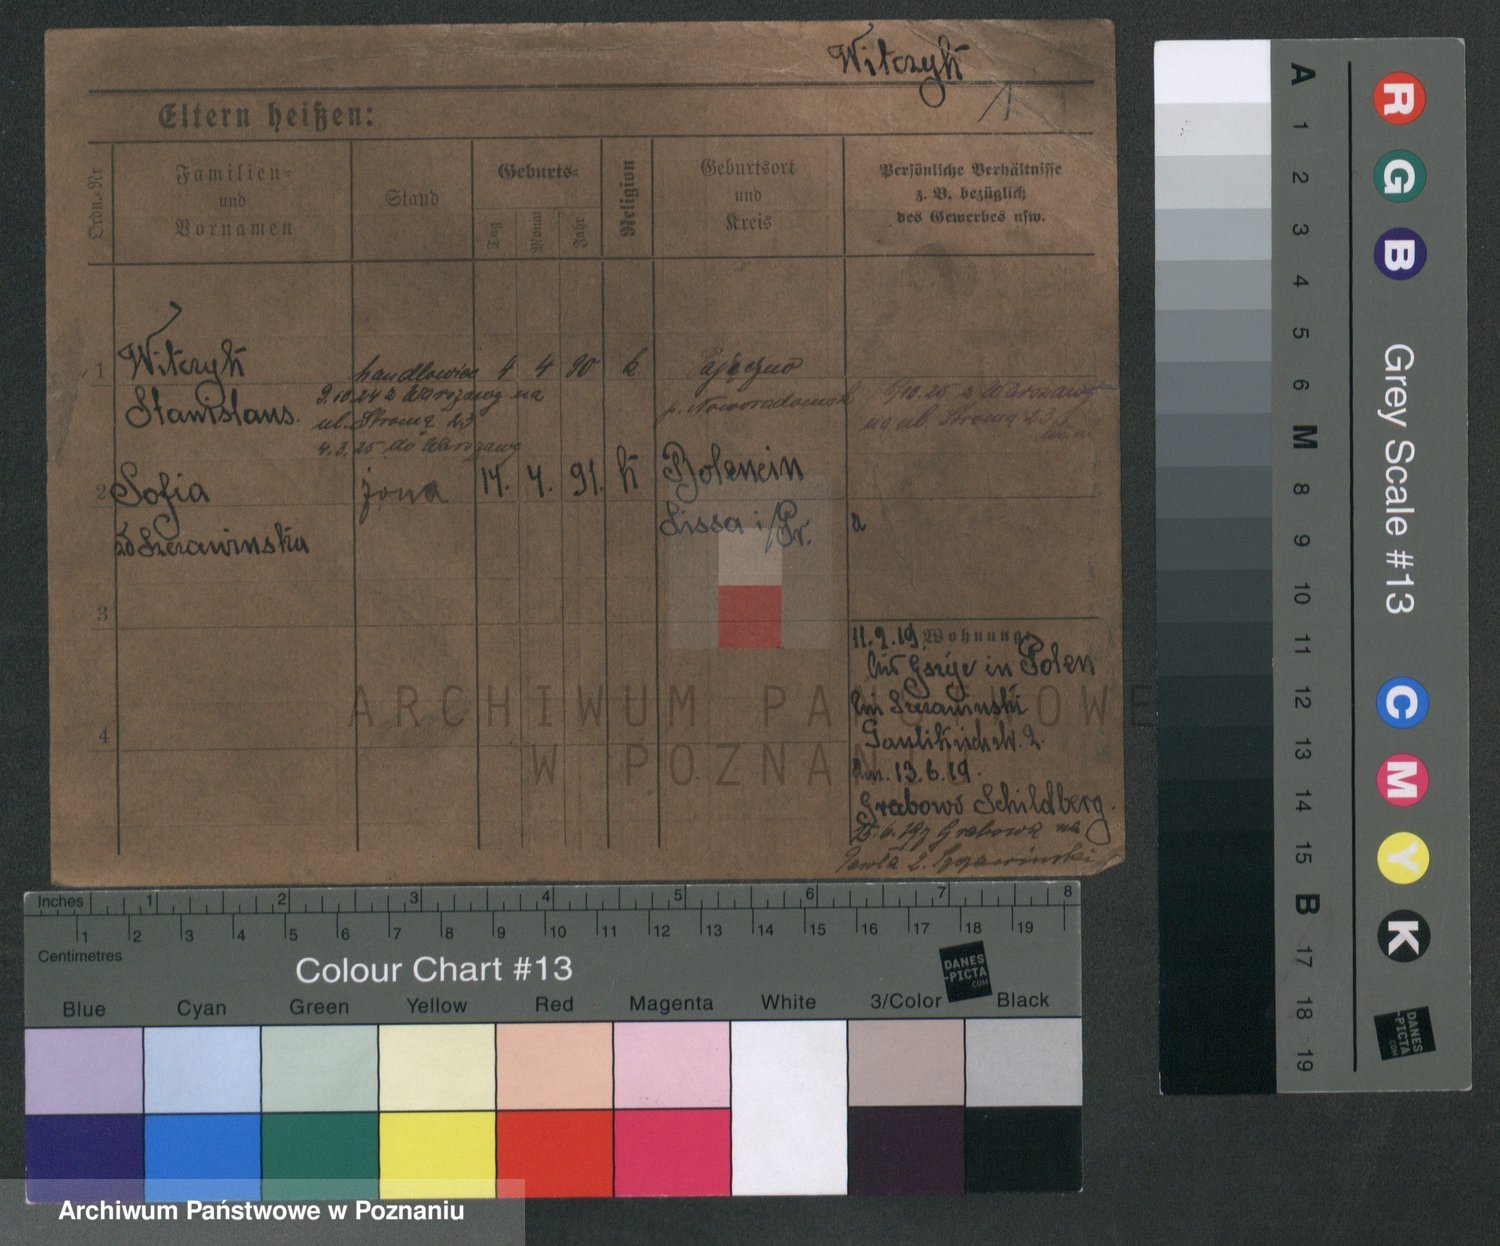 Witczyk
Eltern heißen:
Ordn.=Nr
Familien=
und
Vornamen
Stand
Geburts=
Tag
Monat
Jahr
Religion
Geburtsort
und
Kreis
Persönliche Verhältnisse
z. B. bezüglich
des Gewerbes usw.
1
Witczyk
Stanislaus.
handlowiec
4 4 90 k
Pajęczno
p. Noworadomsk
9.10.24 z Warszawy na
ul. Stroma 23
4.3.25 do Warszawy
/10.25 z Warszawy
na ul Stroma 23
2
Sofia
Szczawinska
żona
14. 4. 91. k
Bolencin
Lissa i/Pr.
3
4
Wohnung
11.9.19.
in Polen
Szczawinski
Paulikirchstr. 2.
13.6.19.
Grabowo Schildberg.
25.6.19 z Grabowa na
Pawła 2. Szczawinski
ARCHIWUM PAŃSTWOWE
W POZNANIU
Inches 1 2 3 4 5 6 7 8
1 2 3 4 5 6 7 8 9 10 11 12 13 14 15 16 17 18 19
Centimetres
Colour Chart #13
DANES
-PICTA
.COM
Blue Cyan Green Yellow Red Magenta White 3/Color Black
Archiwum Państwowe w Poznaniu
A 1 2 3 4 5 6 M 8 9 10 11 12 13 14 15 B 17 18 19
R G B
Grey Scale #13
C M Y K
DANES
-PICTA
.COM